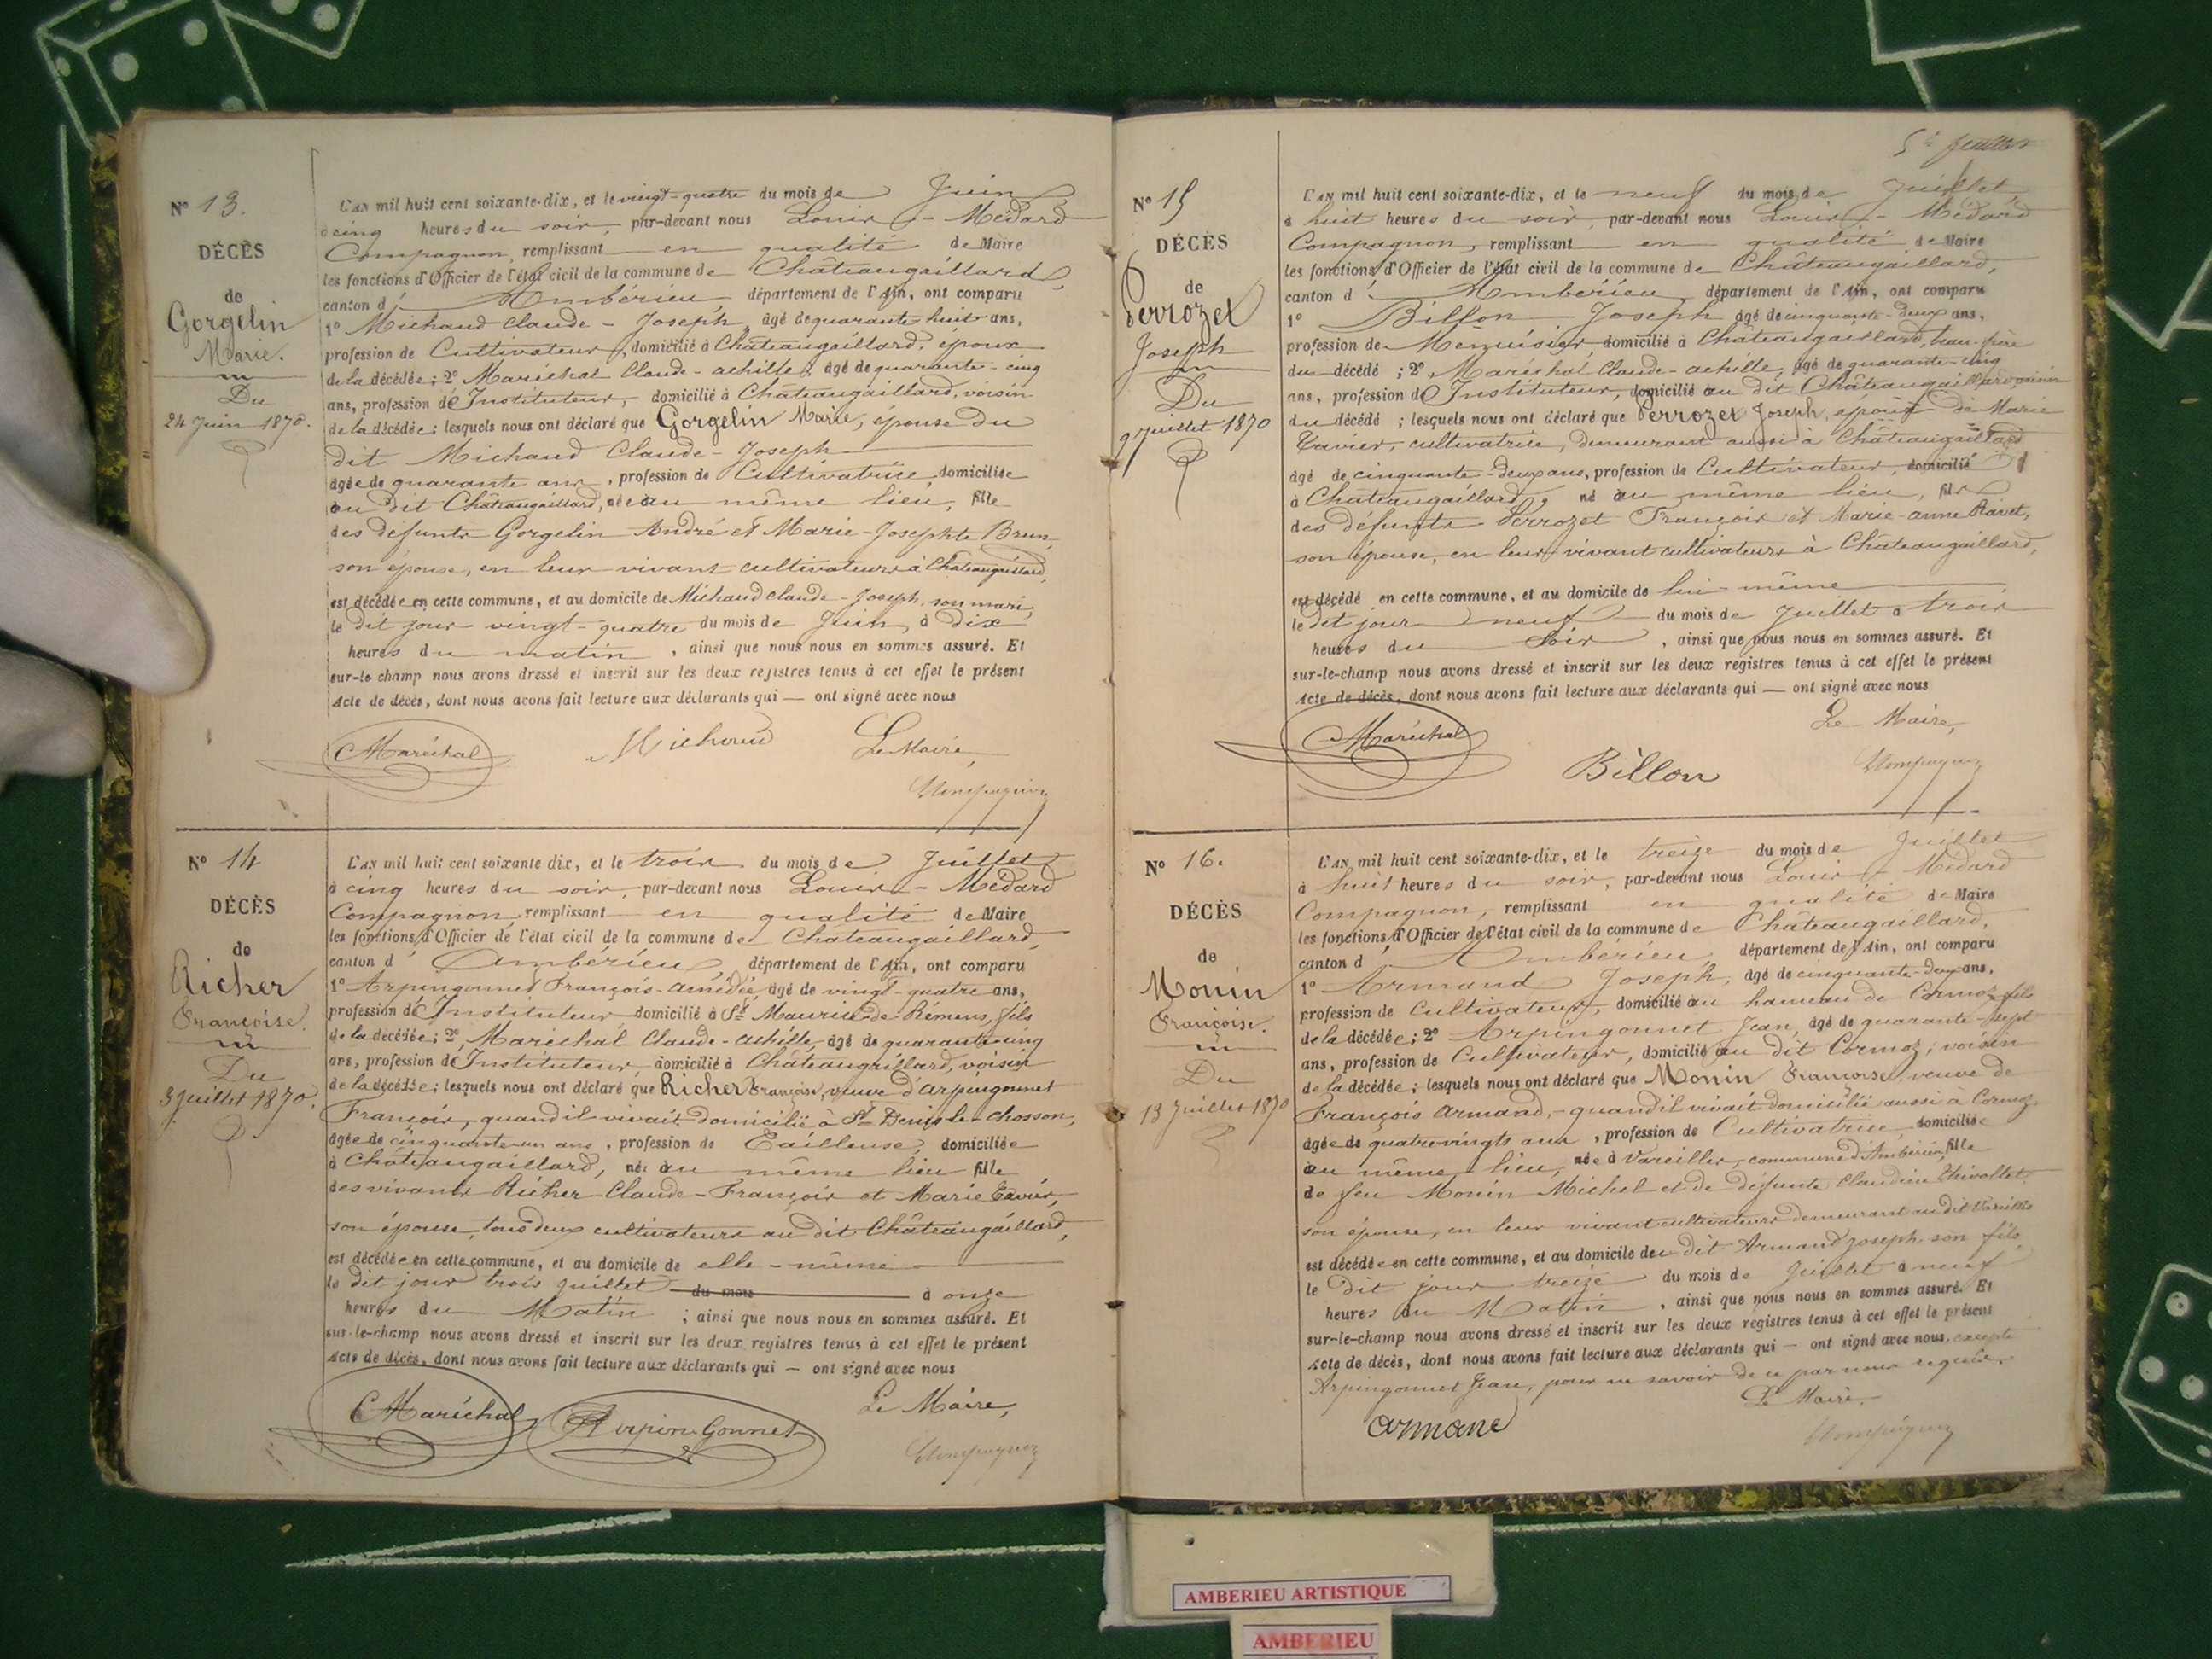 N° 13.
DÉCÈS
de
Gorgelin
Marie.
Du
24 Juin 1870.
L'AN mil huit cent soixante-dix, et le vingt-quatre du mois de Juin
à cinq heures du soir, par-devant nous Louis-Médard
Compagnon, remplissant en qualité de Maire
les fonctions d'Officier de l'état civil de la commune de Châteaugaillard,
canton d'Ambérieu, département de l'Ain, ont comparu
1° Michaud Claude-Joseph, âgé de quarante-huit ans,
profession de Cultivateur, domicilié à Châteaugaillard, époux
de la décédée; 2° Maréchal Claude-achille, âgé de quarante-cinq
ans, profession d'Instituteur, domicilié à Châteaugaillard, voisin
de la décédée; lesquels nous ont déclaré que Gorgelin Marie, épouse du
dit Michaud Claude-Joseph
âgée de quarante ans, profession de Cultivatrice, domiciliée
au dit Châteaugaillard, née au même lieu, fille
des défunts Gorgelin André et Marie-Josephte Brun,
son épouse, en leur vivant cultivateurs à Châteaugaillard,
est décédée en cette commune, et au domicile de Michaud Claude-Joseph, son mari,
le dit jour vingt-quatre du mois de Juin, à dix
heures du matin, ainsi que nous nous en sommes assuré. Et
sur-le champ nous avons dressé et inscrit sur les deux registres tenus à cet effet le présent
Acte de décès, dont nous avons fait lecture aux déclarants qui — ont signé avec nous
Maréchal Michaud Le Maire,
Compagnon
N° 14
DÉCÈS
de
Richer
Françoise.
Du
3 Juillet 1870.
L'AN mil huit cent soixante dix, et le trois du mois de Juillet
à cinq heures du soir, par-devant nous Louis-Médard
Compagnon, remplissant en qualité de Maire
les fonctions d'Officier de l'état civil de la commune de Châteaugaillard,
canton d'Ambérieu, département de l'Ain, ont comparu
1° Arpingonnet François-amédée, âgé de vingt-quatre ans,
profession d'Instituteur domicilié à St Maurice-de-Rémens, fils
de la décédée; 2° Maréchal Claude-achille, âgé de quarante-cinq
ans, profession d'Instituteur, domicilié à Châteaugaillard, voisin
de la décédée; lesquels nous ont déclaré que Richer Françoise, veuve d'Arpingonnet
François, quand il vivait domicilié à St Denis-le-chosson,
âgée de cinquante-un ans, profession de Tailleuse, domiciliée
à Châteaugaillard, née au même lieu fille
des vivants Richer Claude-François et Marie Tavier,
son épouse, tous deux cultivateurs au dit Châteaugaillard,
est décédée en cette commune, et au domicile de elle-même
le dit jour trois juillet du mois à onze
heures du Matin; ainsi que nous nous en sommes assuré. Et
sur-le-champ nous avons dressé et inscrit sur les deux registres tenus à cet effet le présent
Acte de décès, dont nous avons fait lecture aux déclarants qui — ont signé avec nous
Maréchal Arpin-Gonnet Le Maire,
Compagnon
5e feuillet
N° 15
DÉCÈS
de
Perrozet
Joseph
Du
9 Juillet 1870
L'AN mil huit cent soixante-dix, et le neuf du mois de Juillet
à huit heures du soir, par-devant nous Louis-Médard
Compagnon, remplissant en qualité de Maire
les fonctions d'Officier de l'état civil de la commune de Châteaugaillard,
canton d'Ambérieu, département de l'Ain, ont comparu
1° Billon Joseph âgé de cinquante-deux ans,
profession de Menuisier, domicilié à Châteaugaillard, beau-frère
du décédé; 2° Maréchal Claude-achille, âgé de quarante-cinq
ans, profession d'Instituteur, domicilié au dit Châteaugaillard voisin
du décédé; lesquels nous ont déclaré que Perrozet Joseph, époux de Marie
Tavier, cultivatrice, demeurant aussi à Châteaugaillard
âgé de cinquante-deux ans, profession de Cultivateur, domicilié
à Châteaugaillard, né au même lieu, fils
des défunts Perrozet François et Marie-anne Ravet,
son épouse, en leur vivant cultivateurs à Châteaugaillard,
est décédé en cette commune, et au domicile de lui-même
le dit jour neuf du mois de Juillet à trois
heures du soir, ainsi que nous nous en sommes assuré. Et
sur-le-champ nous avons dressé et inscrit sur les deux registres tenus à cet effet le présent
Acte de décès, dont nous avons fait lecture aux déclarants qui — ont signé avec nous
Maréchal Le Maire,
Billon Compagnon
N° 16.
DÉCÈS
de
Monin
Françoise.
Du
13 Juillet 1870
L'AN mil huit cent soixante-dix, et le treize du mois de Juillet
à huit heures du soir, par-devant nous Louis-Médard
Compagnon, remplissant en qualité de Maire
les fonctions d'Officier de l'état civil de la commune de Châteaugaillard,
canton d'Ambérieu, département de l'Ain, ont comparu
1° Armand Joseph, âgé de cinquante-deux ans,
profession de Cultivateur, domicilié au hameau de Cormoz, fils
de la décédée; 2° Arpingonnet Jean, âgé de quarante-sept
ans, profession de Cultivateur, domicilié au dit Cormoz, voisin
de la décédée; lesquels nous ont déclaré que Monin Françoise, veuve de
François Armand, quand il vivait domicilié aussi à Cormoz,
âgée de quatre-vingts ans, profession de Cultivatrice, domiciliée
au même lieu, née à Vareilles, commune d'Ambérieu, fille
de feu Monin Michel et de défunte Claudine Thivollet,
son épouse, en leur vivant cultivateurs demeurant au dit Vareilles
est décédée en cette commune, et au domicile du dit Armand Joseph son fils,
le dit jour treize du mois de Juillet à neuf
heures du Matin, ainsi que nous nous en sommes assuré. Et
sur-le-champ nous avons dressé et inscrit sur les deux registres tenus à cet effet le présent
Acte de décès, dont nous avons fait lecture aux déclarants qui — ont signé avec nous, excepté
Arpingonnet Jean, pour ne savoir de ce par nous requis.
Le Maire,
armand Compagnon
AMBERIEU ARTISTIQUE
AMBERIEU